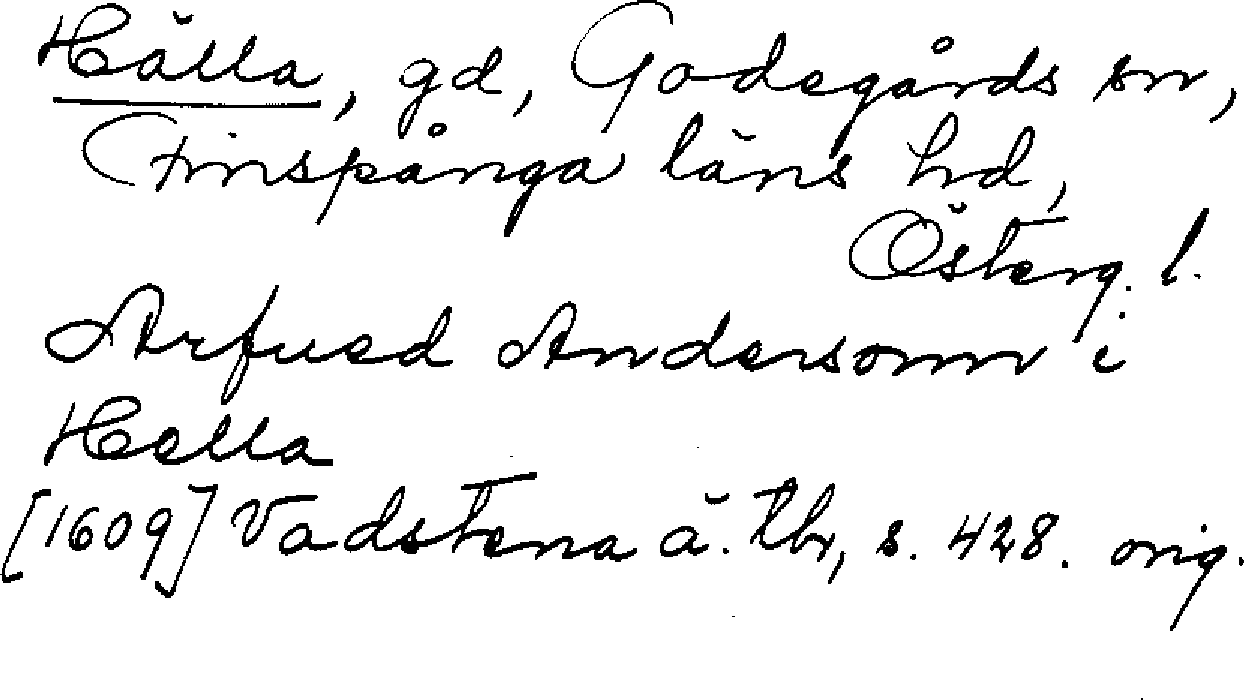 Hälla, gd, Godegårds sn,
Finspånga läns hd,
Österg. l.
Arfued Andersonn i
Hella
[1609] Vadstena ä. tb, s. 428. orig.